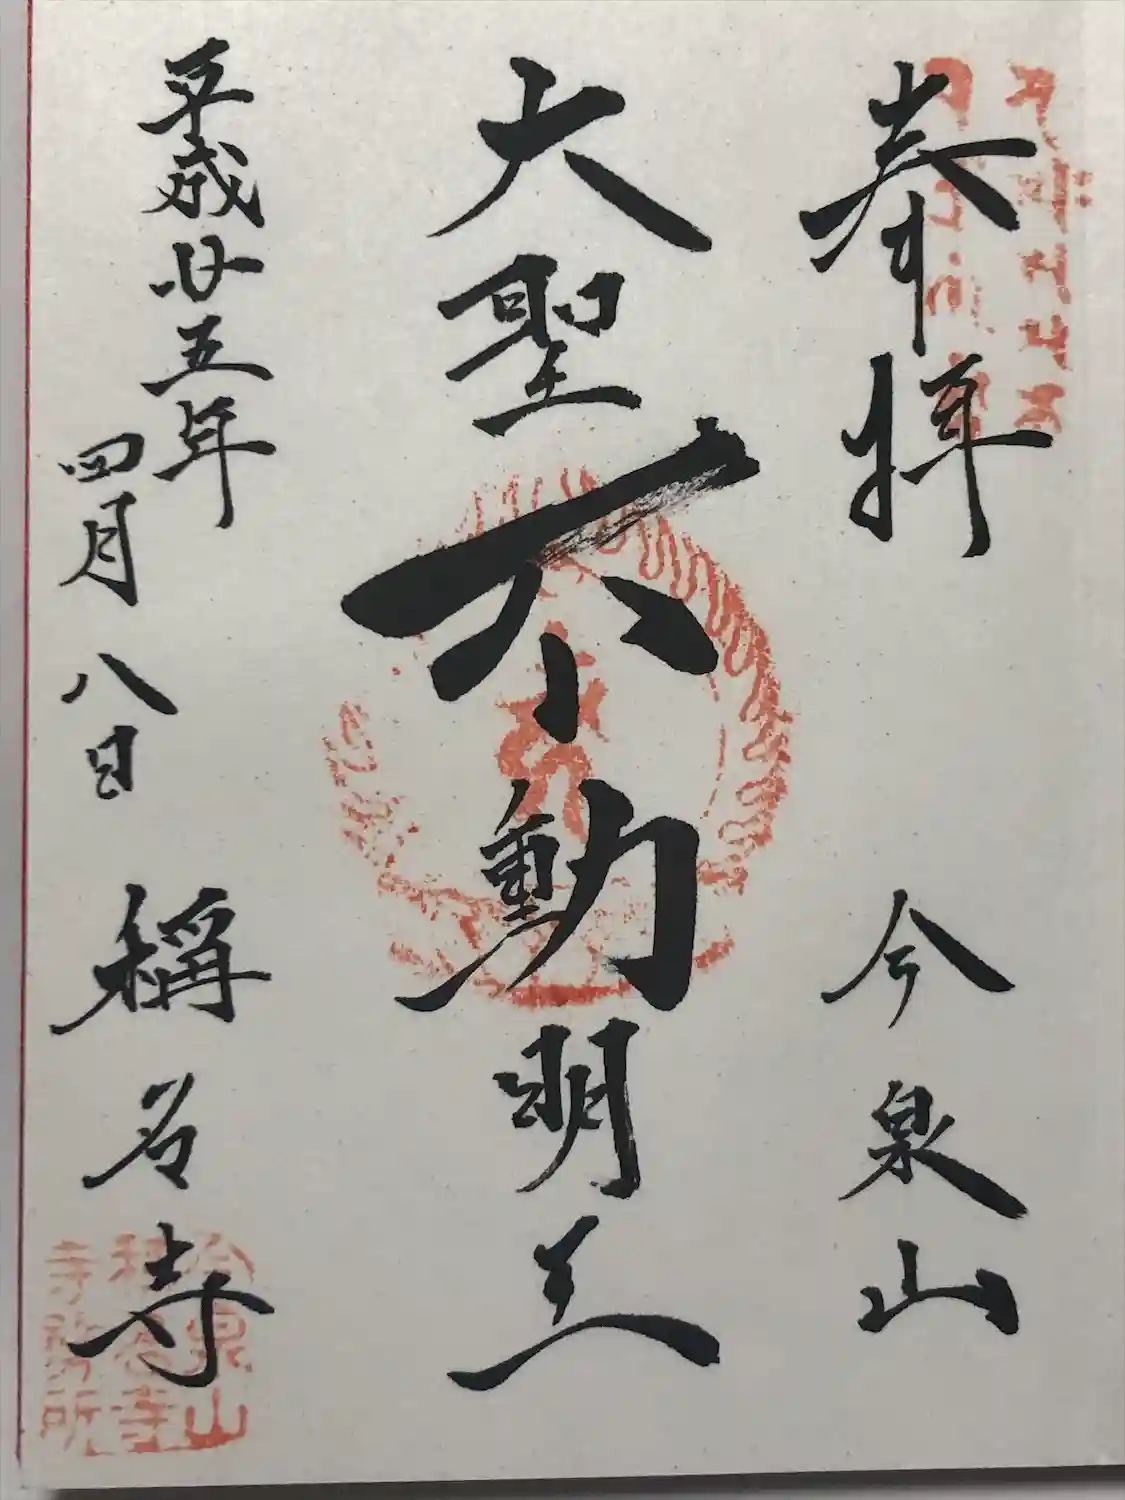 奉拝 今泉山
大聖不動明王
平成廿五年
四月八日 稱名寺
今泉山
稱名寺
寺務所